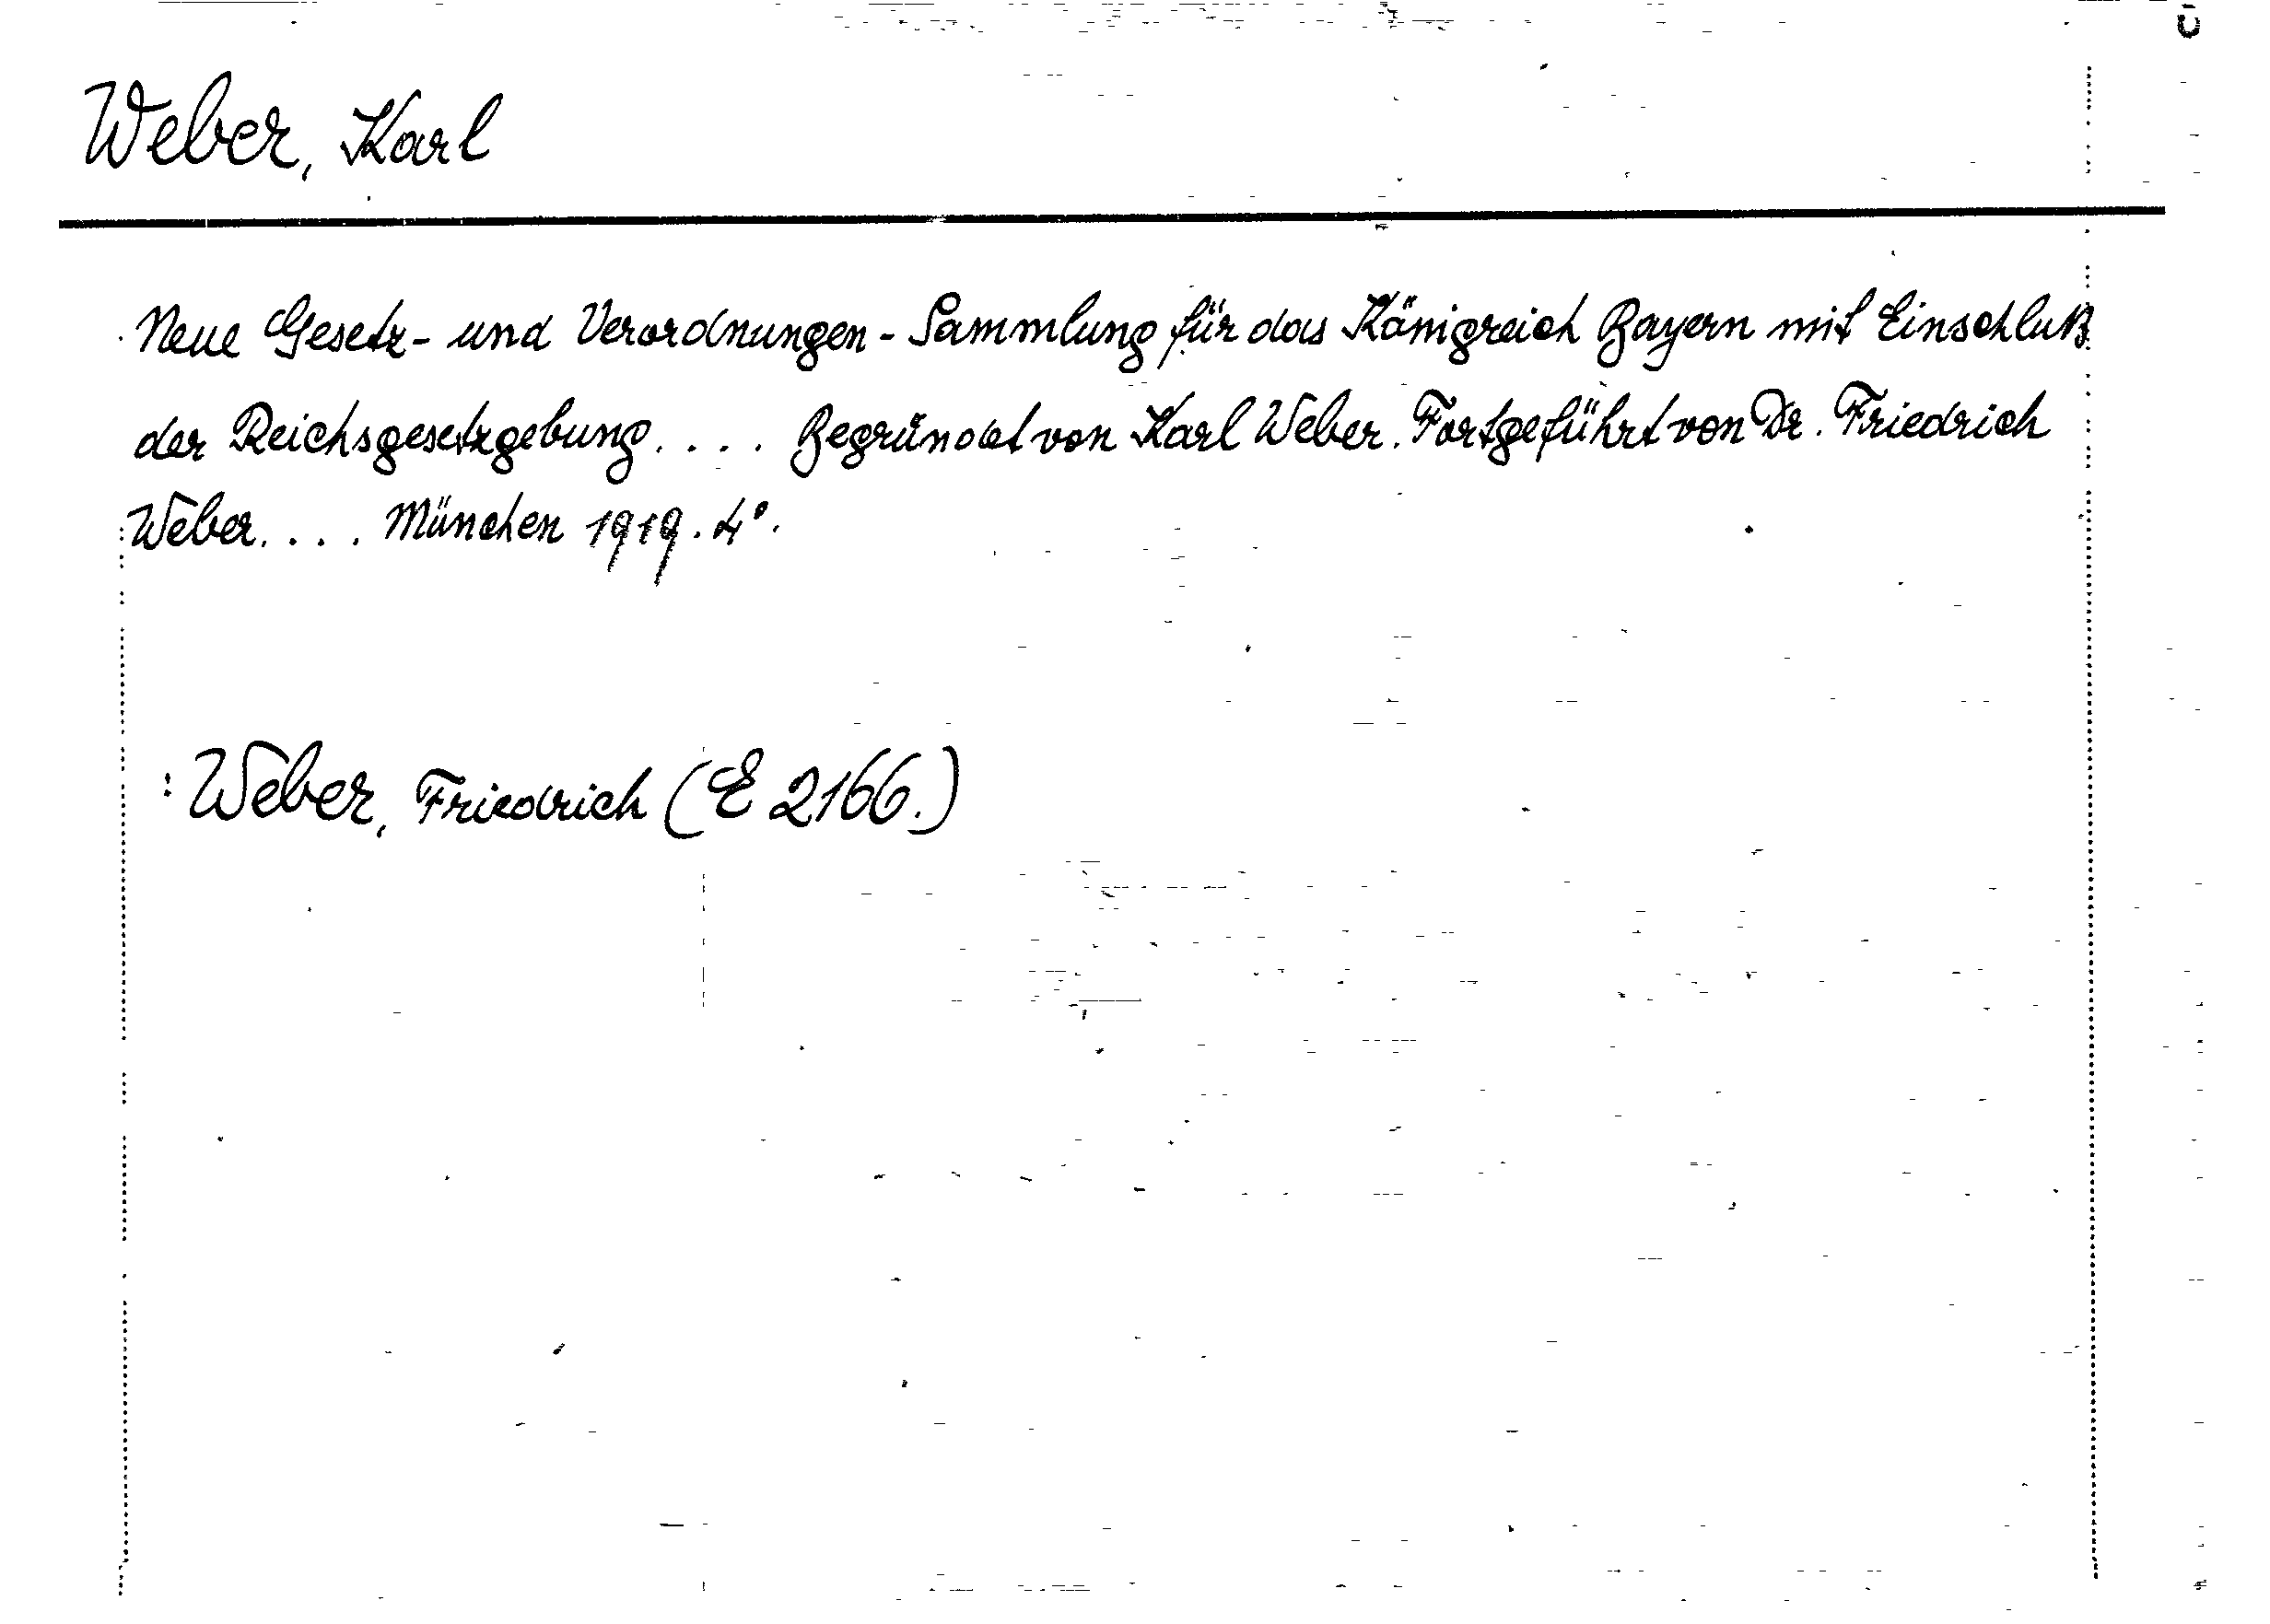 Weber, Karl
Neue Gesetz- und Verordnungen-Sammlung für das Königreich Bayern mit Einschluß
der Reichsgesetzgebung.... Begründet von Karl Weber. Fortgeführt von Dr. Friedrich
Weber.... München 1919. 4°.
: Weber, Friedrich (E 2166.)